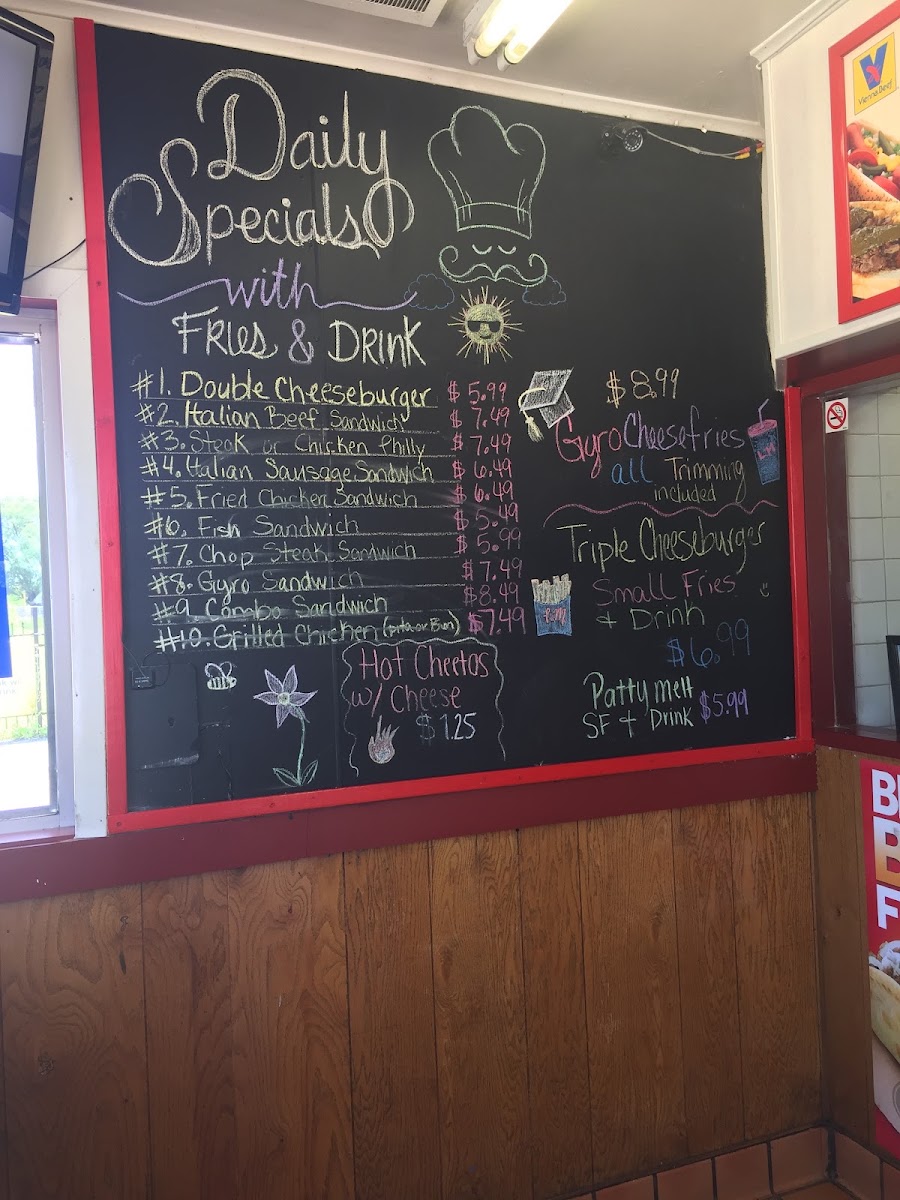 Daily
Specials
with
Fries & Drink
#1. Double Cheeseburger $5.99
#2. Italian Beef Sandwich $7.49
#3. Steak or Chicken Philly $7.49
#4. Italian Sausage Sandwich $6.49
#5. Fried Chicken Sandwich $6.49
#6. Fish Sandwich $5.49
#7. Chop Steak Sandwich $5.99
#8. Gyro Sandwich $7.49
#9. Combo Sandwich $8.49
#10. Grilled Chicken (pita or Bun) $7.49
Hot Cheetos
w/ Cheese
$1.25
$8.99
Gyro Cheesefries
all Trimming
included
Triple Cheeseburger
Small Fries
+ Drink
$6.99
Patty melt $5.99
SF + Drink
V
Vienna Beef
B
B
F